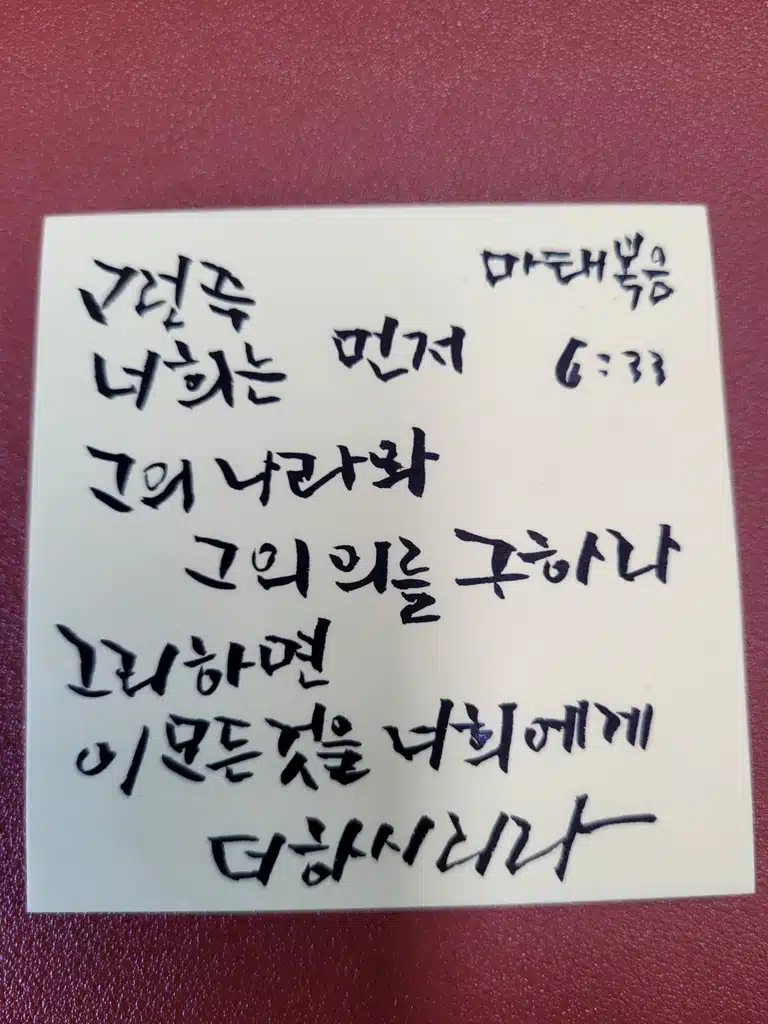 그런즉
너희는 먼저
그의 나라와
그의 의를 구하라
그리하면
이 모든 것을 너희에게
더하시리라
마태복음
6:33